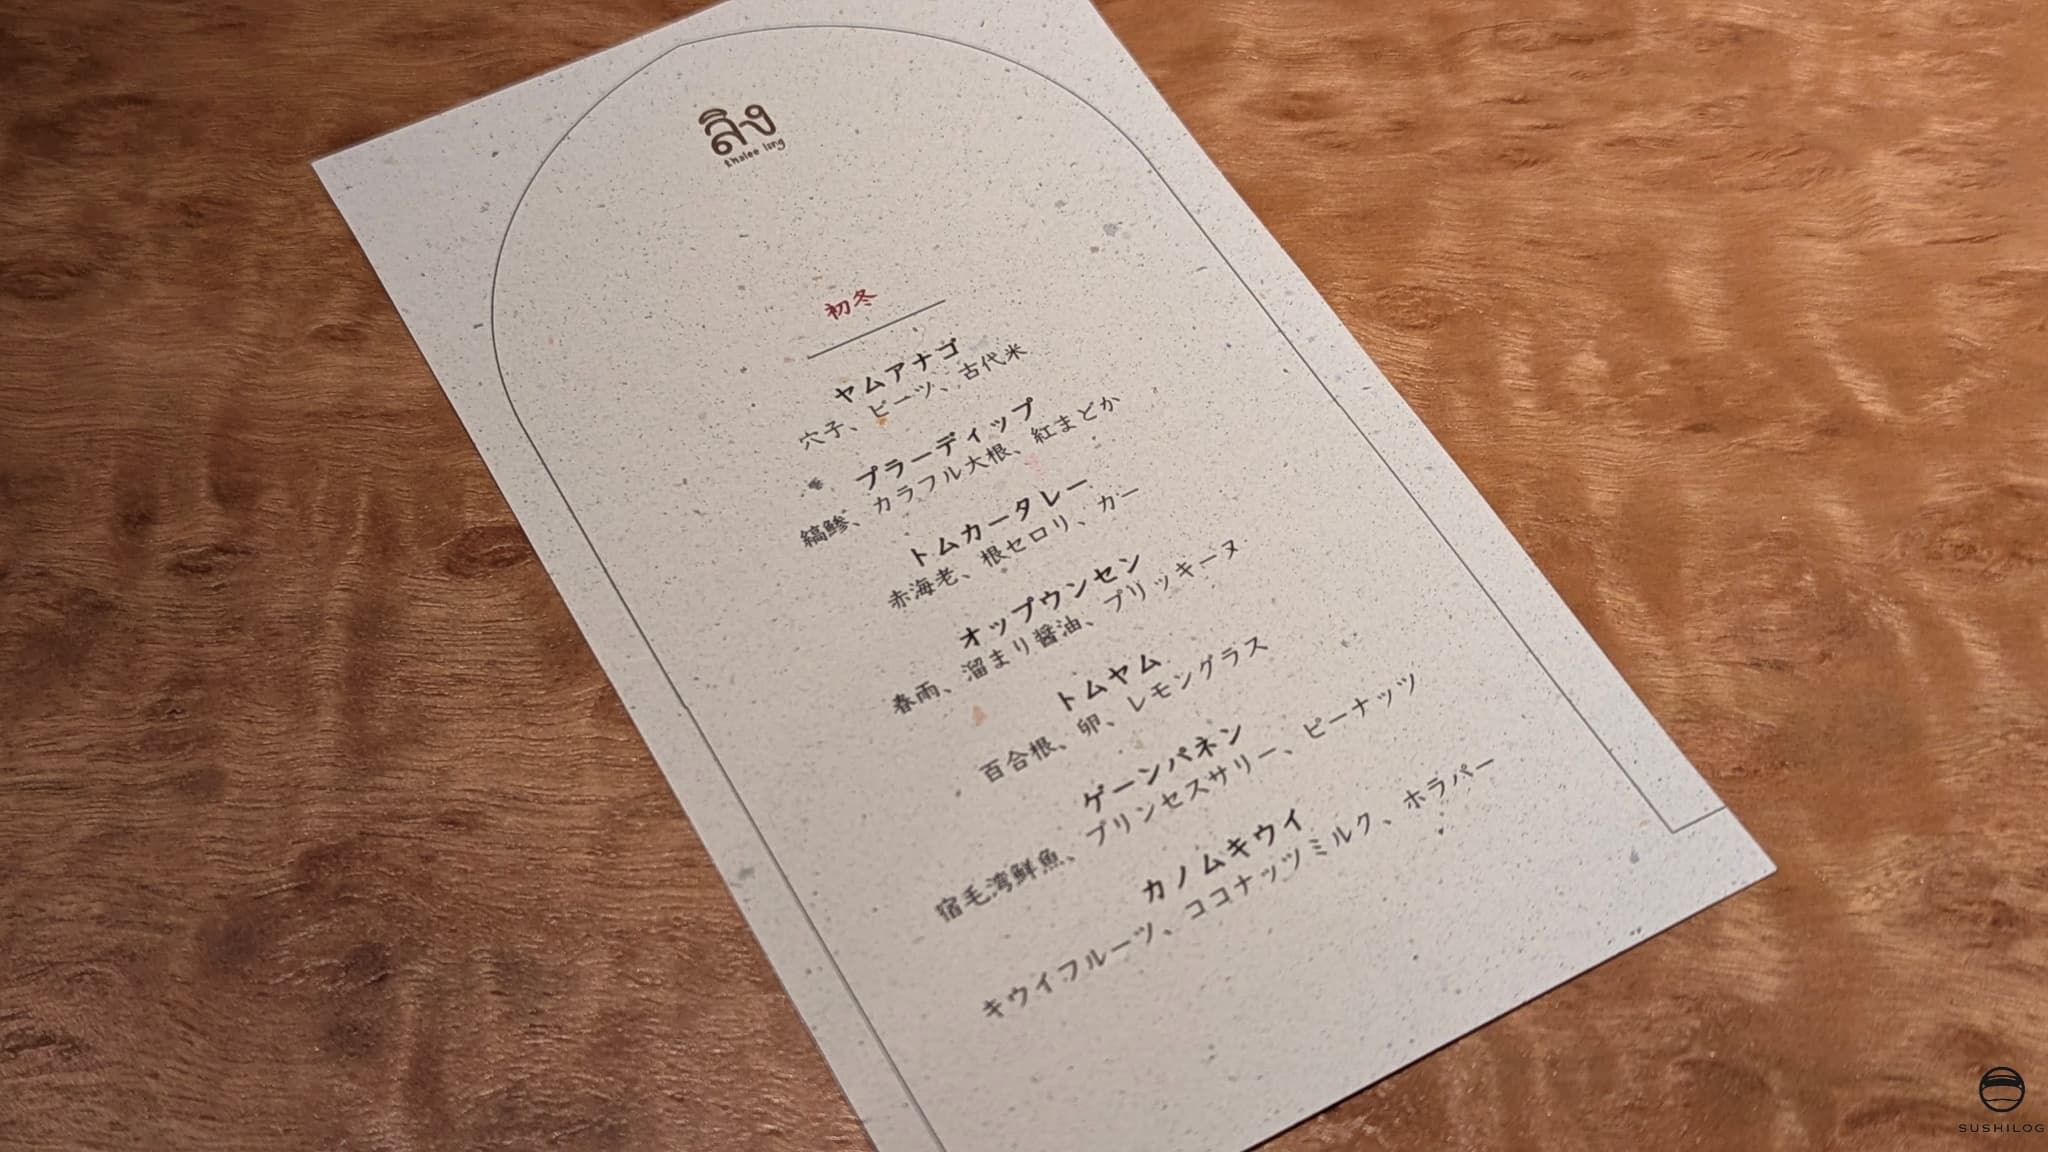 ลิง
khalee ling
初冬
ヤムアナゴ
穴子、ビーツ、古代米
プラーディップ
縞鯵、カラフル大根、紅まどか
トムカータレー
赤海老、根セロリ、カー
オップウンセン
春雨、溜まり醤油、プリッキーヌ
トムヤム
百合根、卵、レモングラス
ゲーンパネン
宿毛湾鮮魚、プリンセスサリー、ピーナッツ
カノムキウイ
キウイフルーツ、ココナッツミルク、ホラパー
SUSHILOG